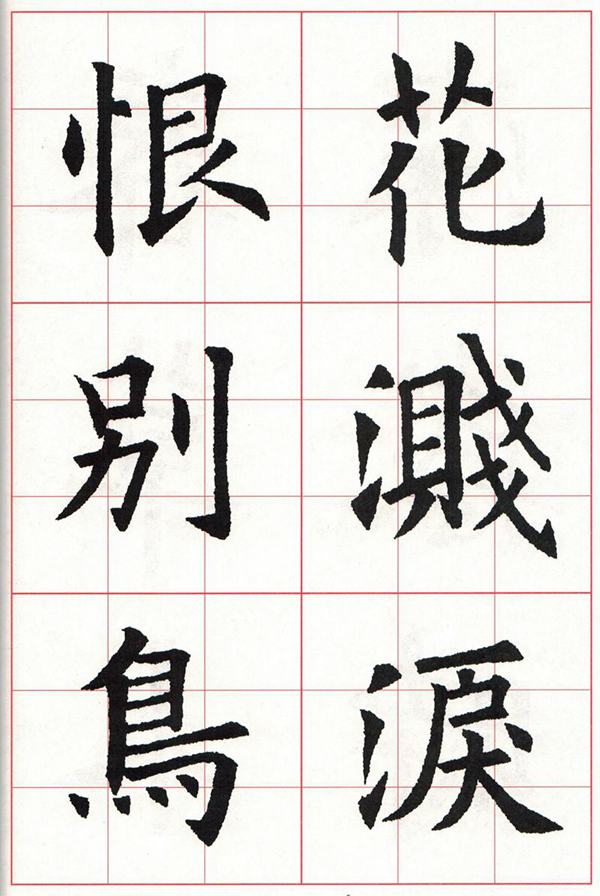 花濺淚
恨別鳥